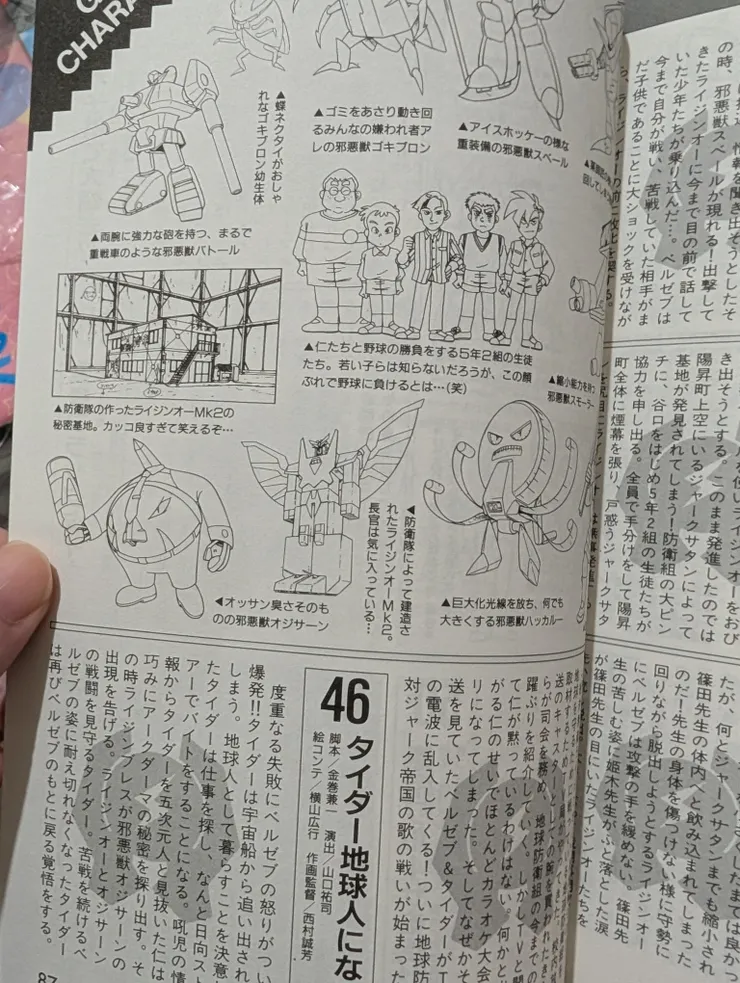 CHARA
▲蝶ネクタイがおしゃ
れなゴキブロン幼生体
▲ゴミをあさり動き回
るみんなの嫌われ者ア
レの邪悪獣ゴキブロン
▲アイスホッケーの様な
重装備の邪悪獣スベール
▲両腕に強力な砲を持つ、まるで
重戦車のような邪悪獣バトール
▲仁たちと野球の勝負をする5年2組の生徒
たち。若い子らは知らないだろうが、この顔
ぶれで野球に負けるとは…(笑)
▲縮小能力を持つ
邪悪獣スモーラー
▲防衛隊の作ったライジンオーMk2の
秘密基地。カッコ良すぎて笑えるぞ…
◀防衛隊によって建造さ
れたライジンオーMk2。
長官は気に入っている…
◀オッサン臭さそのも
のの邪悪獣オジサーン
▲巨大化光線を放ち、何でも
大きくする邪悪獣ハッカルー
46 タイダー地球人にな
脚本/金巻兼一 演出/山口祐司
絵コンテ/横山広行 作画監督/西村誠芳
度重なる失敗にベルゼブの怒りがつい
爆発!!タイダーは宇宙船から追い出され
しまう。地球人として暮らすことを決意
たタイダーは仕事を探し、なんと日向スト
アーでバイトをすることになる。吼児の情
報からタイダーを五次元人と見抜いた仁は
巧みにアークダーマの秘密を探り出す。そ
の時ライジンブレスが邪悪獣オジサーンの
出現を告げる。ライジンオーとオジサーン
の戦闘を見守るタイダー。苦戦を続けるベ
ルゼブの姿に耐え切れなくなったタイダー
は再びベルゼブのもとに戻る覚悟をする。
送のキャスターとしての腕を買われたき
らが司会を務め、地球防衛組の今までの
躍ぶりを紹介していく。しかしTVと聞
て仁が黙っているわけはない。何かと
がる仁のせいでほとんどカラオケ大会
リになってしまった。そしてなぜかそ
送を見ていたベルゼブ&タイダーがT
の電波に乱入してくる!ついに地球防
対ジャーク帝国の歌の戦いが始まった
の時、邪悪獣スベールが現れる!出撃して
きたライジンオーに今まで目の前で話して
いた少年たちが乗り込んだ…。ベルゼブは
今まで自分が戦い、苦戦していた相手がま
だ子供であることに大ショックを受けなが
き出そうとする。このまま発進したのでは
陽昇町上空にいるジャークサタンによって
基地が発見されてしまう!防衛組の大ピン
チに、谷口をはじめ5年2組の生徒たちが
協力を申し出る。全員で手分けをして陽昇
町全体に煙幕を張り、戸惑うジャークサタ
たが、何とジャークサタンまでも縮小され
篠田先生の体内へと飲み込まれてしまった
のだ!先生の身体を傷つけない様に守勢に
回りながら脱出しようとするライジンオー
にベルゼブは攻撃の手を緩めない。篠田先
生の苦しむ姿に姫木先生がふと落とした涙
が篠田先生の目にいたライジンオーたちを
87